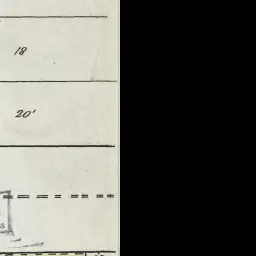 18
20'
s